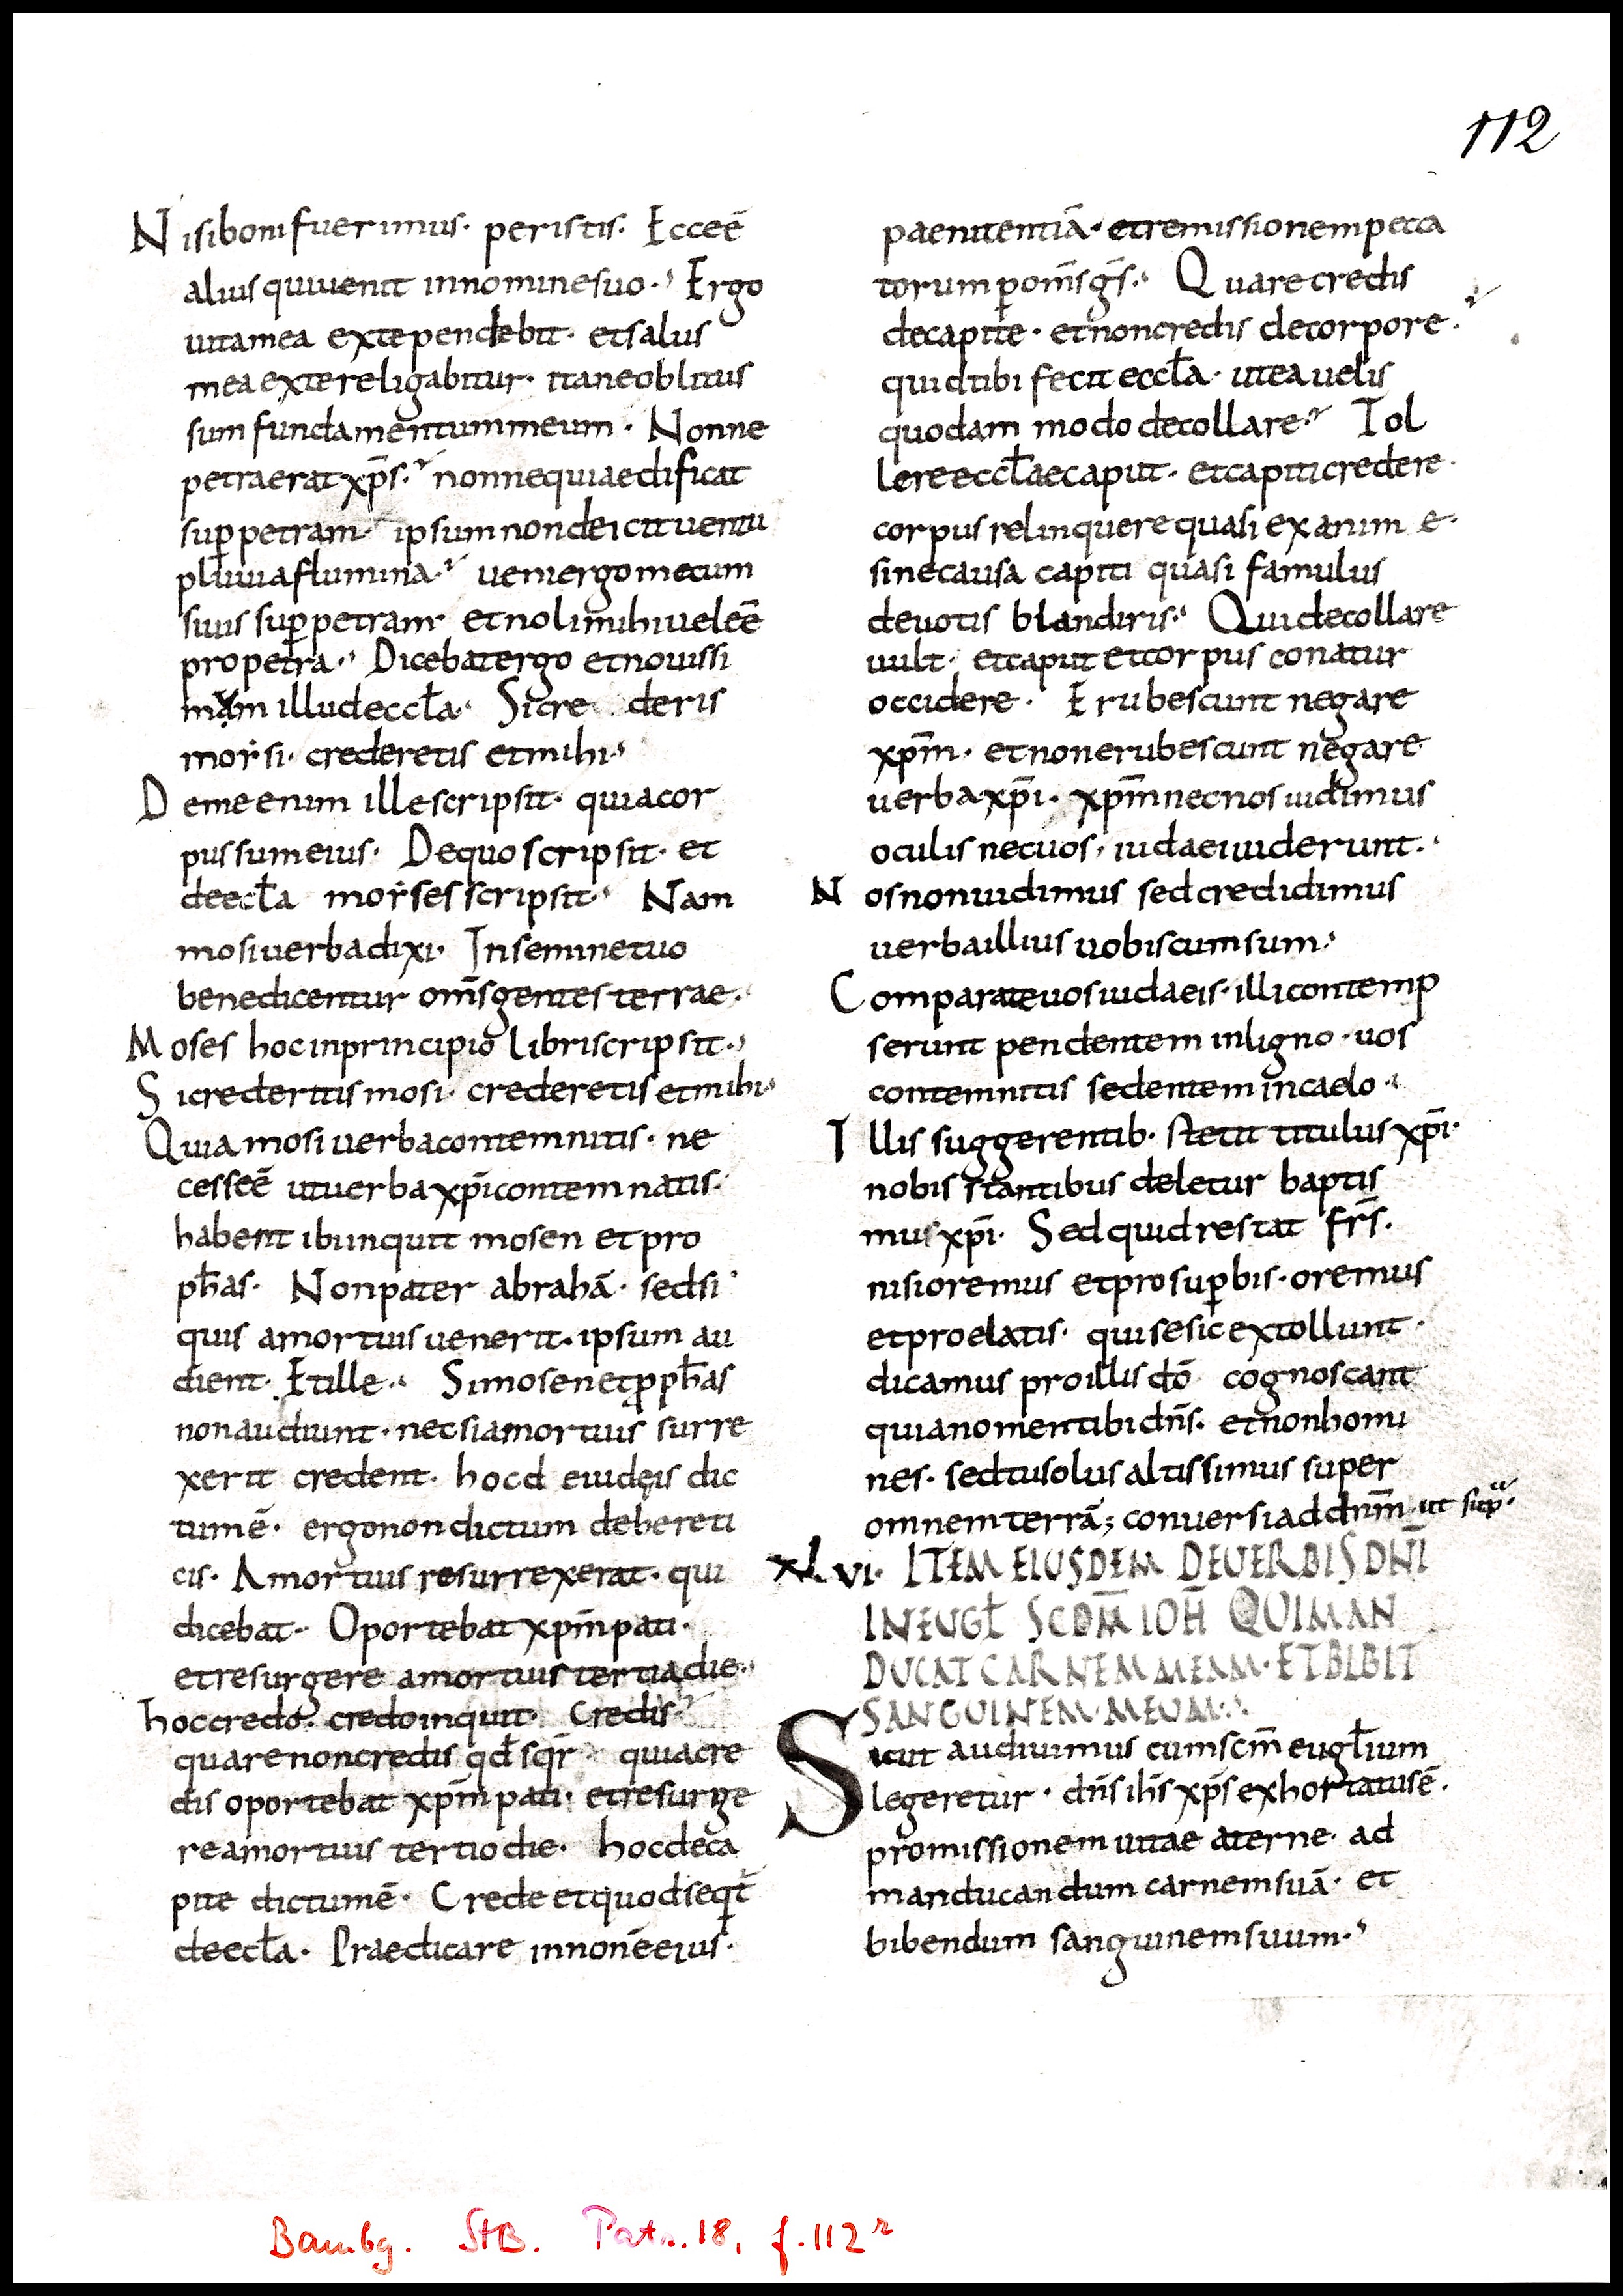 112
Nisiboni fuerimus· peristis· Ecceē
alius quiuenit innominesuo· Ergo
uitamea extependebit· etsalus
mea extereligabitur· itaneoblitus
sum fundamentummeum· Nonne
petraeratxp̄s· nonnequiaedificat
sup̱petram· ipsumnondeicituentu
pluuiaflumina· ueniergomecum
siuis sup̱petram· etnolimihiueleē
propetra· Dicebatergo etnouissi
mam illudeccła· Sicre deris
moysi· crederetis etmihi·
Demeenim illescripsit· quiacor
pussumeius· Dequoscripsit· et
deecła moysesscripsit· Nam
mosiuerbadixi· Inseminetuo
benedicentur om̄sgentesterrae·
Moses hocinprincipio libriscripsit·
Sicrederitismosi· crederetisetmihi·
Quiamosiuerbacontemnitis· ne
cesseē utuerbaxp̄icontemnatis·
habent ibiinquit mosen etpro
pħas· Nonpater abrahā· sedsi
quis amortuisuenerit· ipsum au
dient· Etille· Simosenetꝓpħas
nonaudiunt· necsiamortuis surre
xerit credent· hocd eiudeis dic
tumē· ergonondictum dehereti
cis· Amortuis resurrexerat· qui
dicebat· Oportebat xpm̄pati·
etresurgere amortuis tertiadie·
hoccredo· credoinquit· Credis
quarenoncredis qđsqr̄ quiacre
dis oportebat xpm̄pati· etresurge
reamortuis tertiodie· hocdeca
pite dictumē· Crede etquodseqt̄
deecła· Praedicare innonēeius·
paenitentiā· etremissionempecca
torump̱om̄sgs̄· Quarecredis
decapite· etnoncredis decorpore·
quidtibi fecit eccła· uteauelis
quodam modo decollare· Tol
lereeccłaecaput· etcapiticredere·
corpusrelinquerequasiexanim e·
sinecausa capiti quasi famulus
deuotis blandiris· Quidecollare
uult· etcaput etcorpus conatur
occidere· Erubescunt negare
xpm̄· etnonerubescunt negare
uerbaxp̄i· xpm̄necnosuidimus
oculis necuos, iudaeiuiderunt·
Nosnonuidimus sedcredidimus
uerbaillius uobiscumsum·
Comparateuosiudaeis· illicontemp
serunt pendentem inligno· uos
contemnitis sedentemincaelo·
Illis suggerentib· stetit titulusxp̄i·
nobis stantibus deletur baptis
musxp̄i· Sedquidrestat fr̄s·
nisioremus etprosup̱bis· oremus
etproelatis· quisesicextollunt·
dicamus proillis dō cognoscant
quianomentibidn̄s· etnonhomi
nes· sedtusolusaltissimus super
omnemterrā; conuersiaddnm̄ ut supᵃ·
xlvi· ITEM EIUSDEM DEUERBIS DNĪ
INEUGŁ SCDM̄ IOH̄ QUIMAN
DUCAT CARNEM MEAM· ETBIBIT
SANGUINEM MEUM·
Sicut audiuimus cumscm̄ eugłium
legeretur· dn̄s ih̄s xp̄s exhortatusē·
promissionem uitae aterne· ad
manducandum carnemsuā· et
bibendum sanguinemsuum·
Bambg. StB. Patr. 18, f. 112ʳ